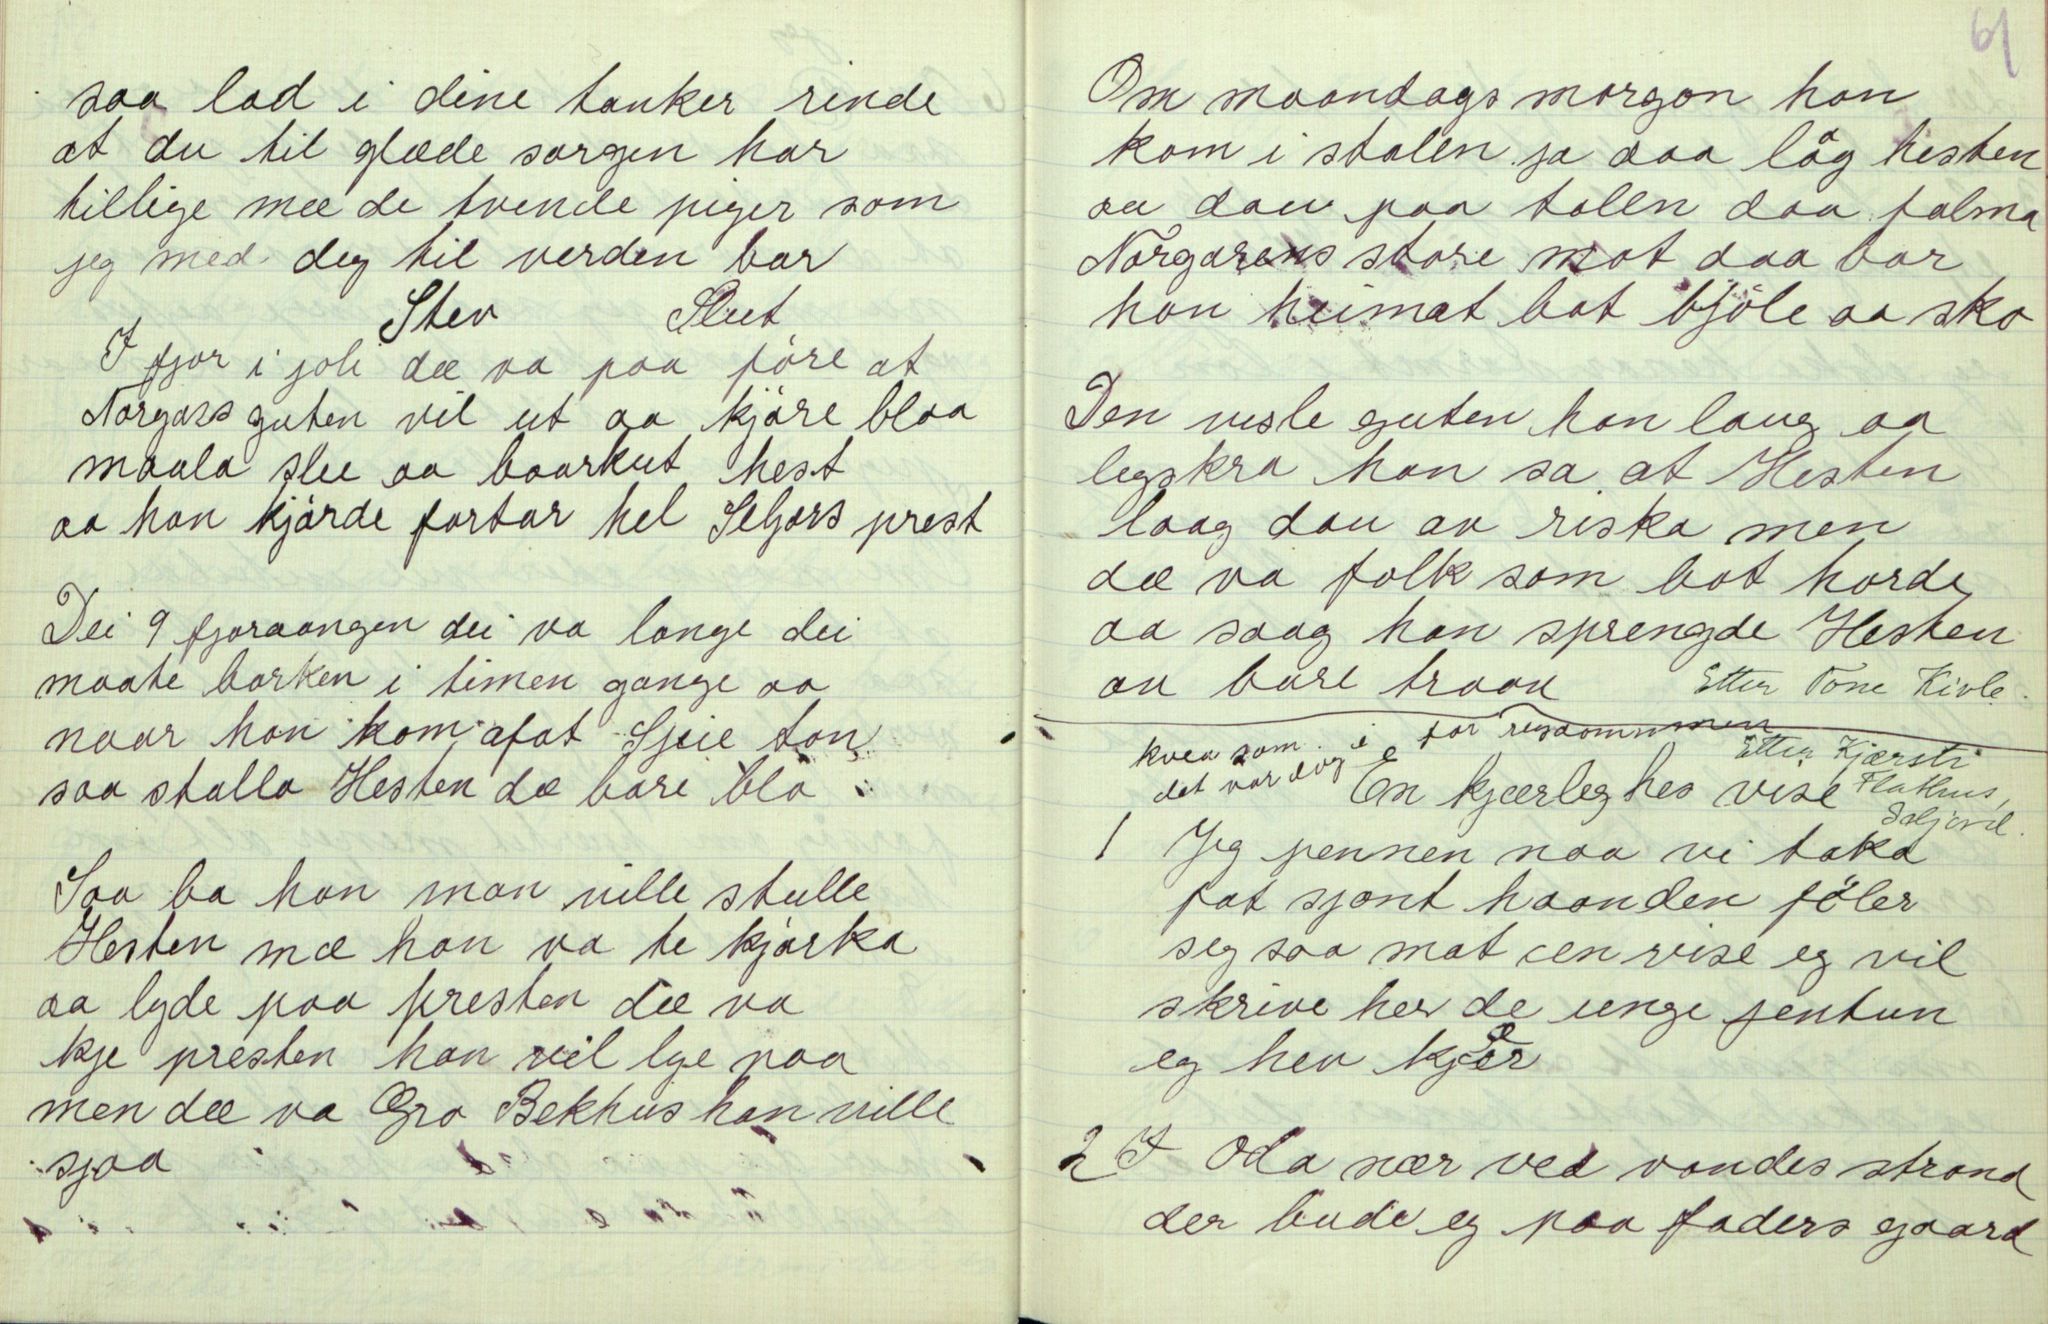 saa lad i dine tanker rinde
at du til glæde sorgen har
tillige mæ de tvende piger som
jeg med deg til verden bar
Slut
Stev
I fjor i joli dæ va paa före at
Norgars guten vil ut aa kjöre blaa
maala slee aa baarkut hest
aa han kjörde fortar hel Seljors prest
Dei 9 fjoraangen dei va lange dei
maate barken i timen gange aa
naar han kom afat Sjeie ton
saa stalla Hesten dæ bare bla
Saa ba han man ville stulle
Hesten mæ han va te kjörka
aa lyde paa presten dæ va
kje presten han vil lye paa
men dæ va Gro Bekhus han ville
sjaa
61
Om maandags morgon han
kom i stalen ja daa låg hesten
au dau paa talen daa falma
Norgarens store mot daa bar
han heimat bot bjöle aa sko
Den vesle guten han laug aa
legskra han sa at Hesten
laag dau av riska men
dæ va folk som bot horde
aa saag han sprengde Hesten
av bare traau
Etter Tone Kivle.
kvea som
det var dog
Etter Kjærsti
Flathus,
Seljord.
En kjærleghes vise
1 Jeg pennen naa vi taka
fat sjönt haanden föler
seg saa mat en vise eg vil
skrive her de unge jentun
eg hev kjær
2 I Oda nær ved vandes strand
der bude eg paa faders gaard